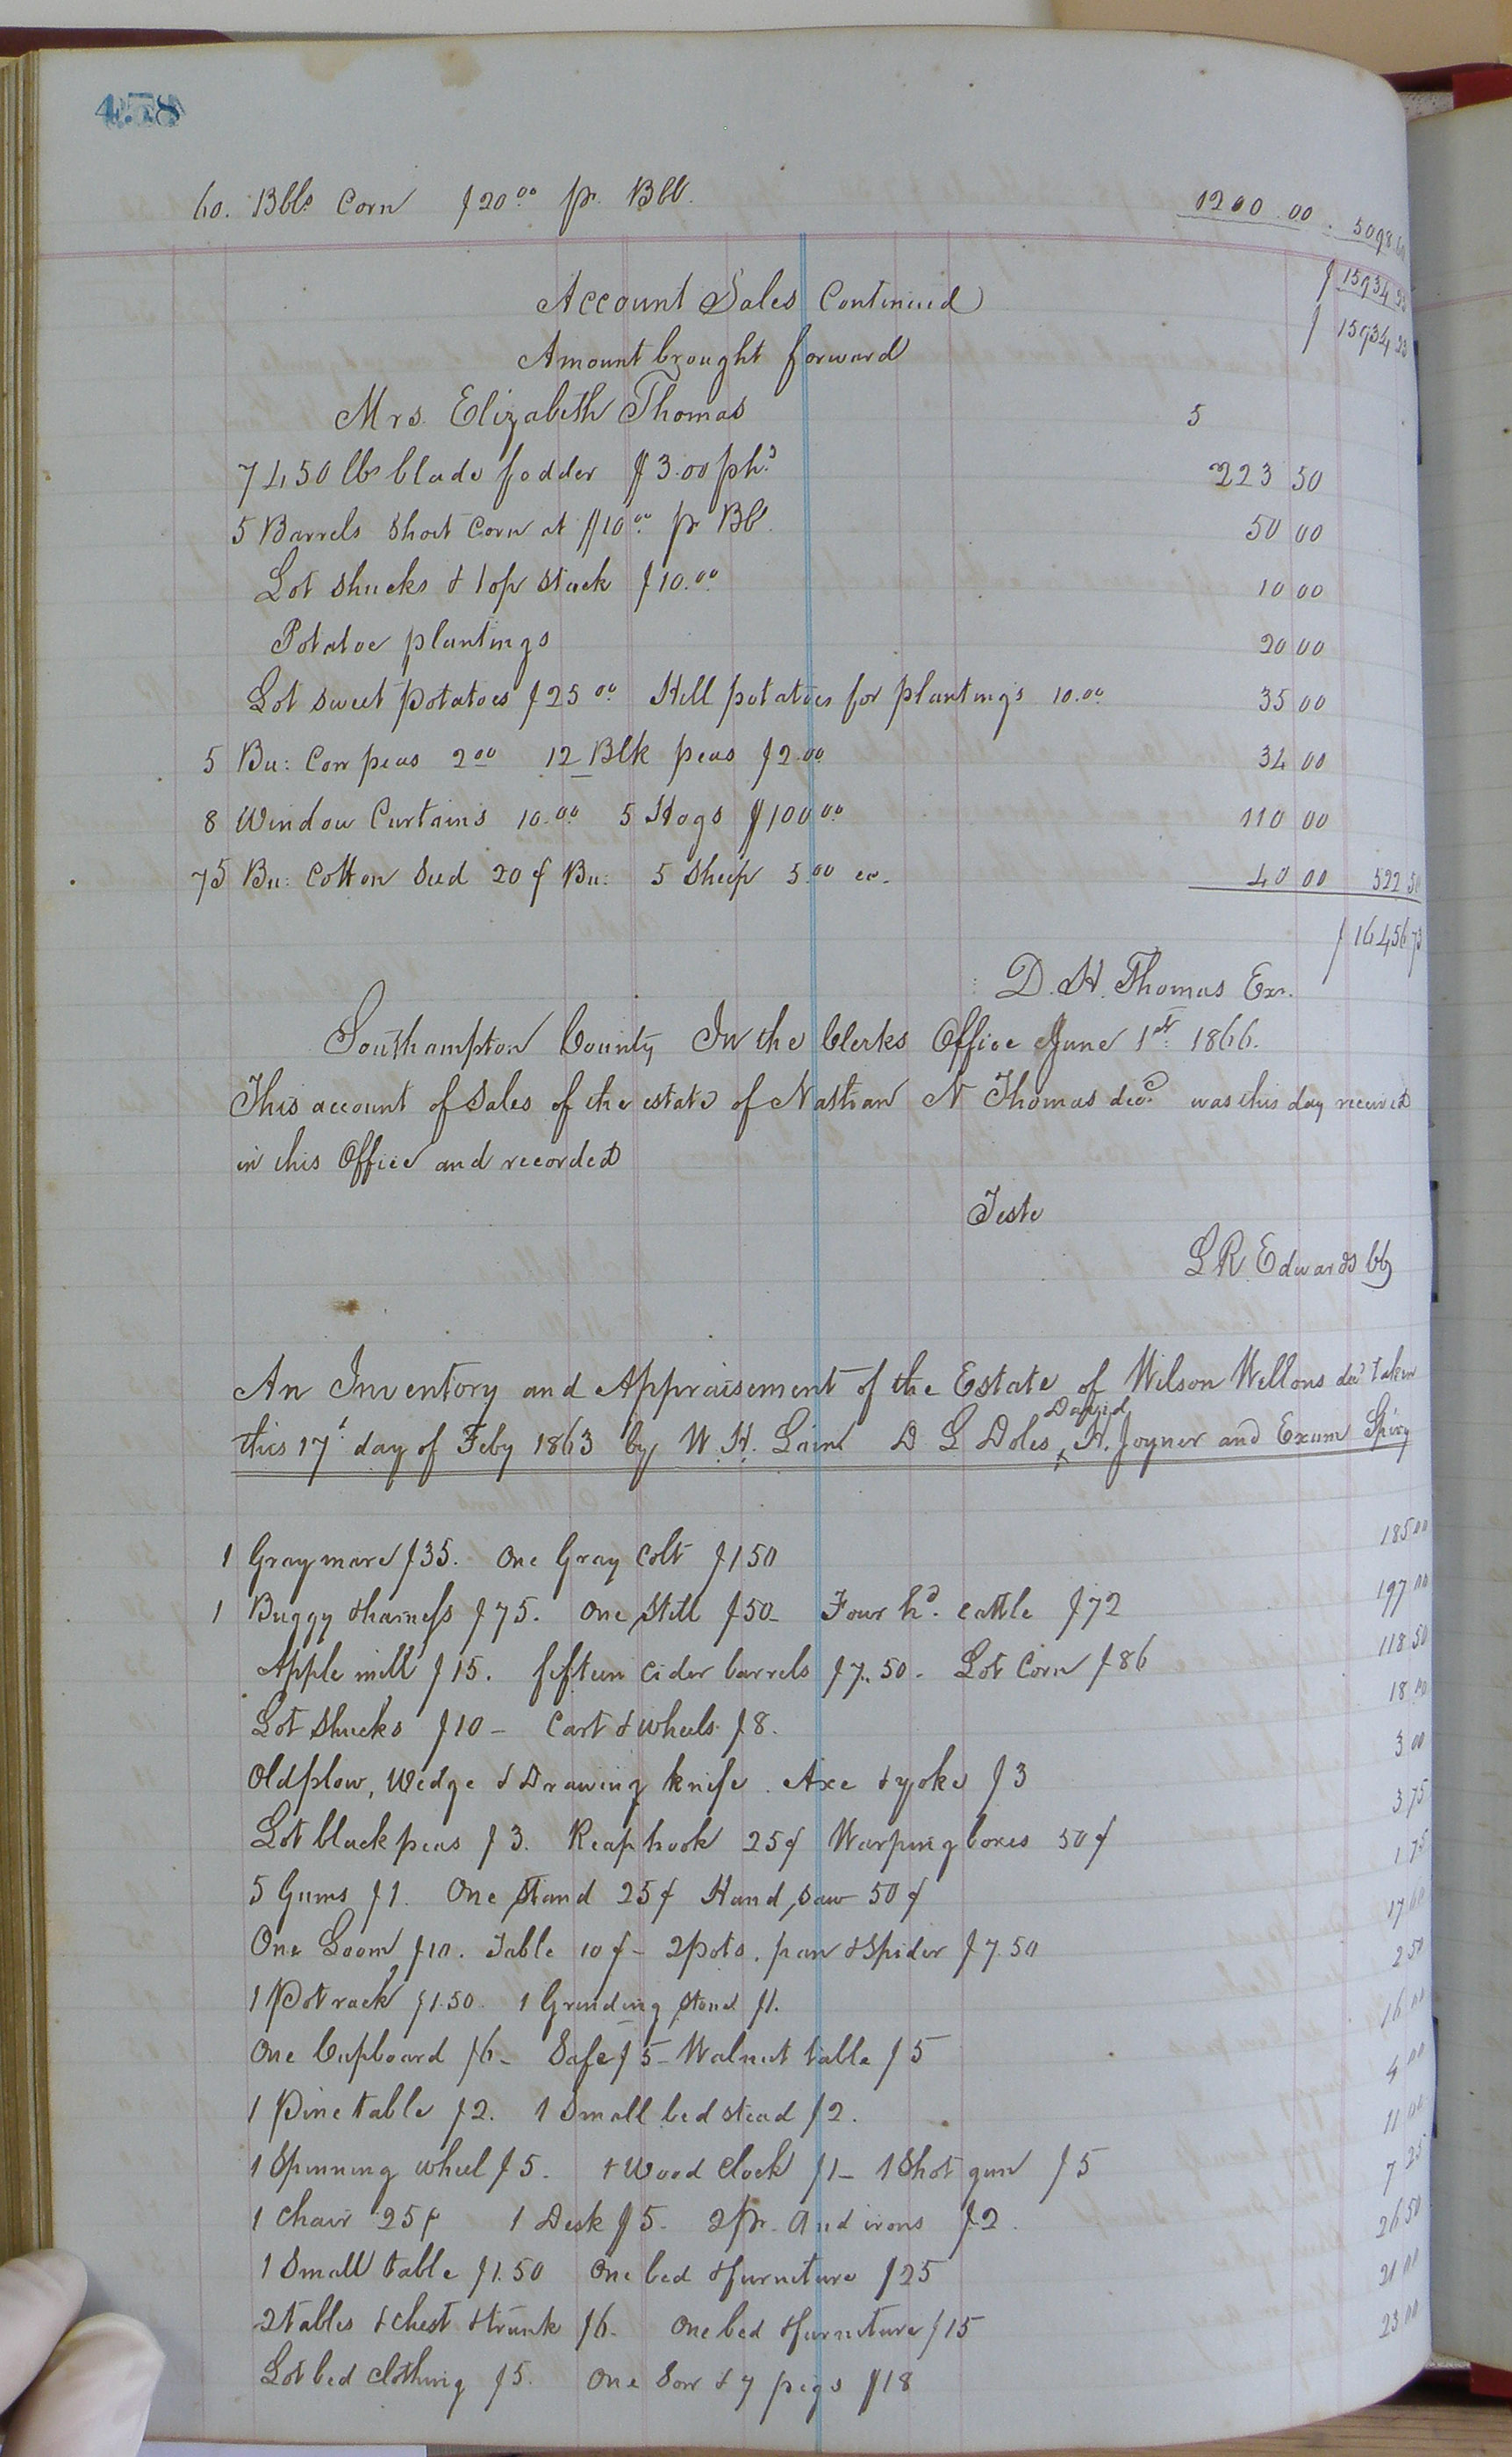 458
60. Bbls Corn $20.00 pr. Bbl. 1200.00. 5098.60
$15934 23
Account Sales Continued
Amount brought forward $15934 23
Mrs. Elizabeth Thomas 5
7450 lbs blade fodder $3.00 phd 223 50
5 Barrels Short Corn at $10.00 pr Bbl. 50 00
Lot Shucks & top stack $10.00 10 00
Potatoe plantings 20 00
Lot Sweet potatoes $25 00 Hill potatoes for plantings 10.00 35 00
5 Bu: Corn peas 2 00 12 Blk peas $2.00 34 00
8 Window Curtains 10.00 5 Hogs $100 00 110 00
75 Bu: Cotton Seed 20¢ Bu: 5 Sheep 5.00 ea. 40 00 522 50
$16456 73
D. H. Thomas Exr.
Southampton County In the Clerks Office June 1st 1866.
This account of Sales of the estate of Nathan N Thomas decd was this day received
in this Office and recorded
Teste
L R Edwards CC
An Inventory and Appraisement of the Estate of Wilson Wellons decd taken
this 17t day of Feby 1863 by W. H. Laine D L Doles, David H. Joyner and Exum Spivy
1 Gray mare $35. One Gray Colt $150 185 00
1 Buggy & harness $75. One Still $50 - Four hd. cattle $72 197 00
Apple mill $15. fifteen cider barrels $7.50 - Lot Corn $86 118.50
Lot Shucks $10 - Cart & wheels $8. 18 00
Old plow, Wedge & Drawing knife. Axe & yoke $3 3 00
Lot black peas $3. Reap hook 25¢ Warping boxes 50¢ 3 75
5 Gums $1. One Stand 25¢ Hand saw 50¢ 1 75
One Loom $10. Table 10¢ - 2 pots. pan & Spider $7.50 17 60
1 Pot rack $1.50. 1 Grinding stone $1. 2 50
One Cupboard $6 - Safe $5 - Walnut table $5 16 00
1 Pine table $2. 1 Small bed stead $2. 4 00
1 Spinning wheel $5. 1 Wood clock $1 - 1 Shot gun $5 11 00
1 Chair 25¢ 1 Desk $5. 2 pr. And irons $2. 7 25
1 Small table $1.50 One bed & furniture $25 26 50
2 tables & chest & trunk $6 - One bed & furniture $15 21 00
Lot bed clothing $5. One Sow & 7 pigs $18 23 00